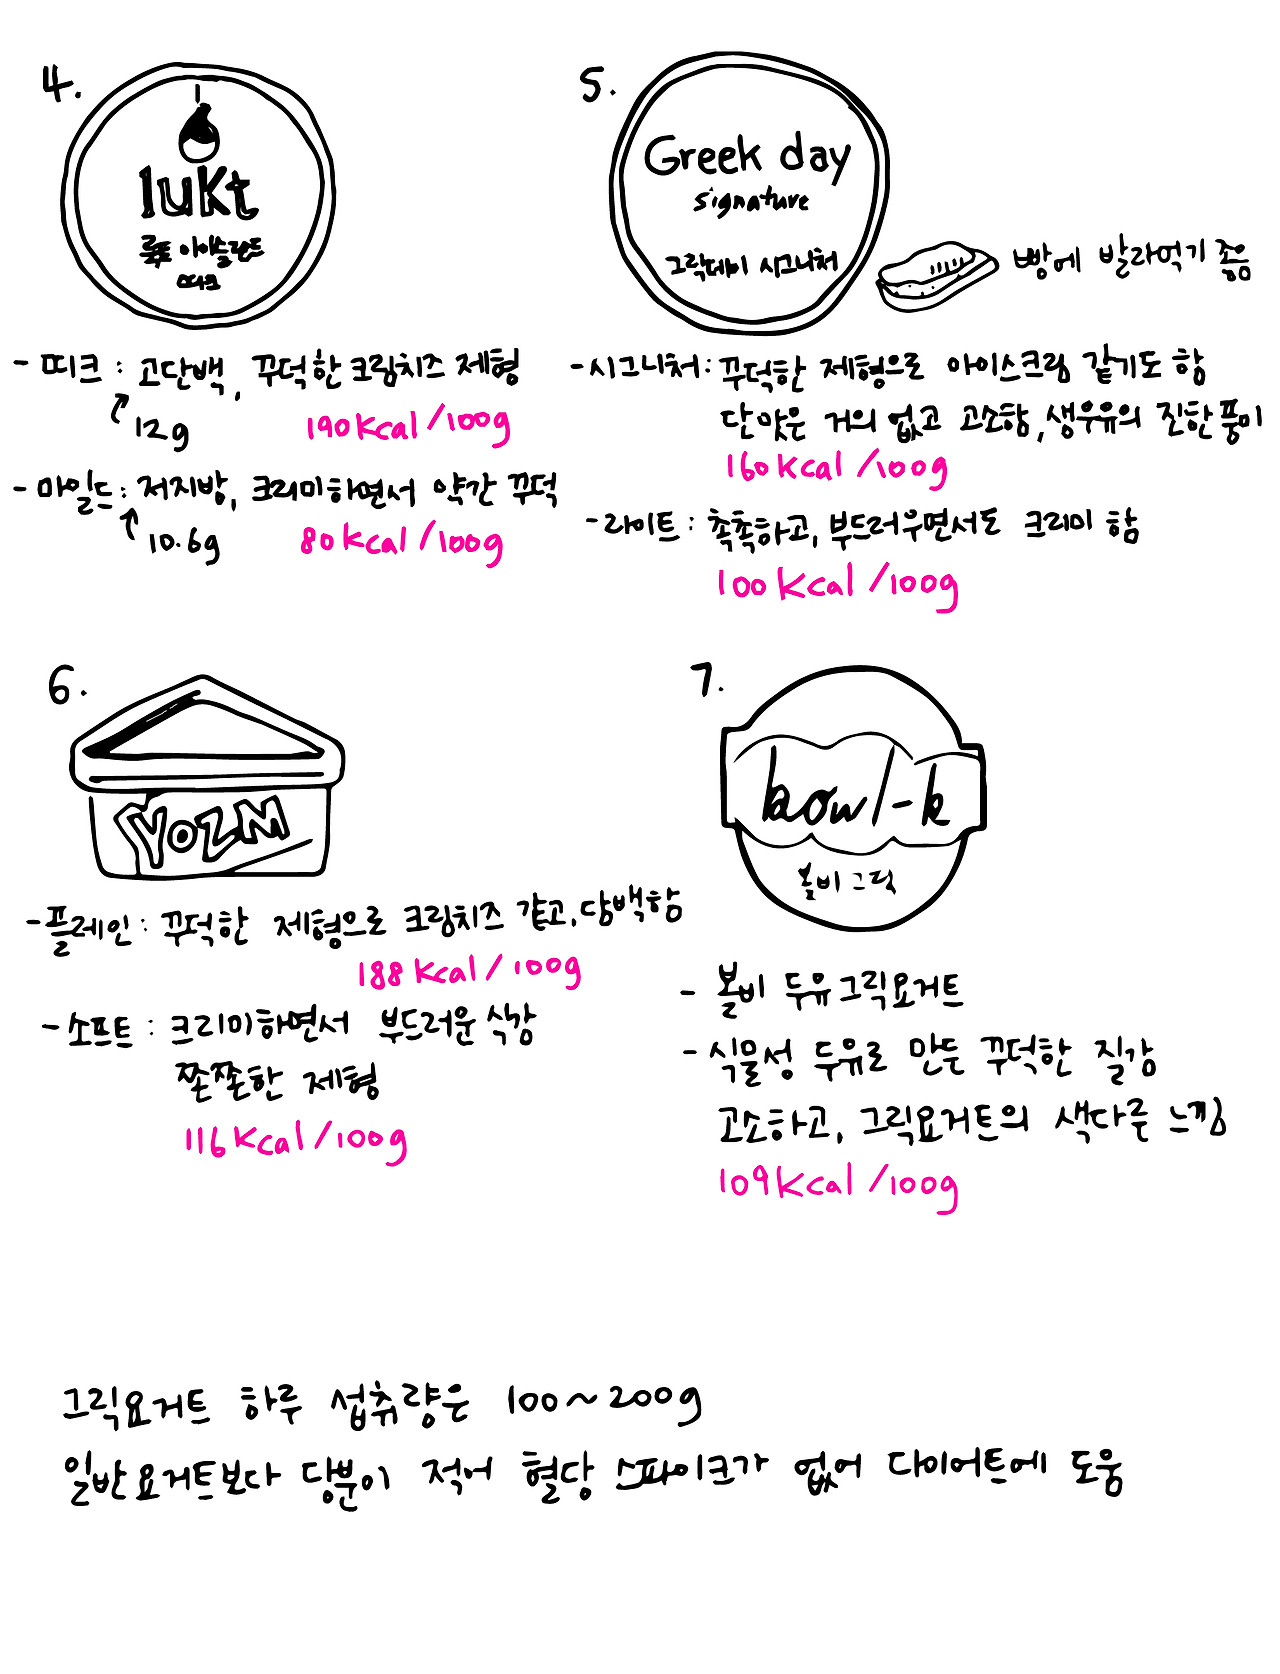 4.
lukt
룩트 아이슬란드
띠크
- 띠크 : 고단백, 꾸덕한 크림치즈 제형
12g
190Kcal/100g
- 마일드 : 저지방, 크리미하면서 약간 꾸덕
10.6g
80Kcal/100g
5.
Greek day
signature
그릭데이 시그니처
빵에 발라먹기 좋음
- 시그니처 : 꾸덕한 제형으로 아이스크림 같기도 함
단맛은 거의 없고 고소함, 생우유의 진한 풍미
160Kcal/100g
- 라이트 : 촉촉하고, 부드러우면서도 크리미 함
100Kcal/100g
6.
YOZM
- 플레인 : 꾸덕한 제형으로 크림치즈 같고, 담백함
188Kcal/100g
- 소프트 : 크리미하면서 부드러운 식감
쫀쫀한 제형
116Kcal/100g
7.
bowl-k
볼비그릭
- 볼비 두유그릭요거트
- 식물성 두유로 만든 꾸덕한 질감
고소하고, 그릭요거트의 색다른 느낌
109Kcal/100g
그릭요거트 하루 섭취량은 100~200g
일반요거트보다 당분이 적어 혈당 스파이크가 없어 다이어트에 도움